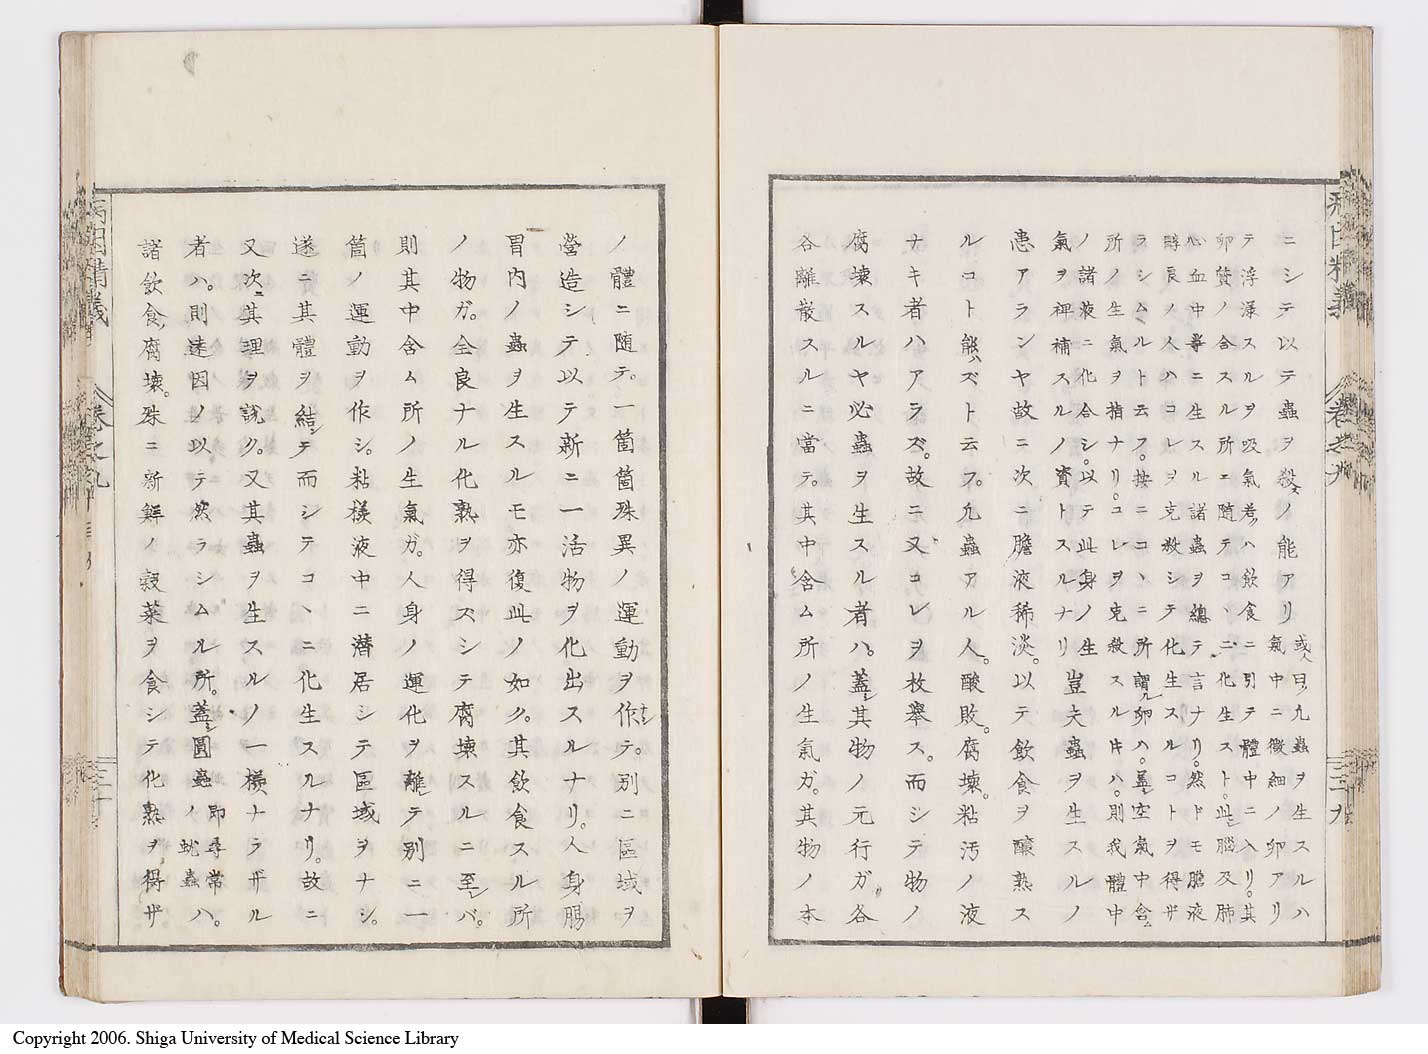 ニシテ以テ蟲ヲ殺スノ能アリ或人曰ク九蟲ヲ生スルハ
氣中ニ微細ノ卵アリ
テ浮漾スルヲ吸氣者クハ飲食ニ引テ體中ニ入リ。其
卵質ノ合スル所ニ随テコヽニ化生スト。此レ腦及肺
心血中等ニ生スル諸蟲ヲ總テ言ナリ。然ドモ膽液
醇良ノ人ハコレヲ克殺シテ化生スルコトヲ得ザ
ラシムルト云フ。按ニコヽニ所謂ル卵ハ。蓋シ空氣中含ム
所ノ生氣ヲ指ナリ。コレヲ克殺スルキハ。則我體中
ノ諸液ニ化合シ。以テ此身ノ生
氣ヲ裨補スルノ資トスルナリ豈夫蟲ヲ生スルノ
患アランヤ故ニ次ニ膽液稀淡。以テ飲食ヲ醸熟ス
ルコト能ハズト云フ。九蟲アル人。酸敗。腐壊。粘汚ノ液
ナキ者ハアラズ。故ニ又コレヲ枚舉ス。而シテ物ノ
腐壊スルヤ必蟲ヲ生スル者ハ。蓋シ其物ノ元行ガ各
各離散スルニ當テ。其中含ム所ノ生氣ガ。其物ノ本
病因精義 卷之九 三十九
ノ體ニ随テ。一箇箇殊異ノ運動ヲ作シテ。別ニ區域ヲ
營造シテ以テ新ニ一活物ヲ化出スルナリ。人身腸
胃内ノ蟲ヲ生スルモ亦復此ノ如ク。其飲食スル所
ノ物ガ。全良ナル化熟ヲ得スシテ腐壊スルニ至レバ。
則其中含ム所ノ生氣ガ。人身ノ運化ヲ離テ別ニ一
箇ノ運動ヲ作シ。粘様液中ニ潜居シテ區域ヲナシ。
遂ニ其體ヲ結シテ而シテコヽニ化生スルナリ。故ニ
又次ニ其理ヲ説ク。又其蟲ヲ生スルノ一様ナラザル
者ハ。則速因ノ以テ然ラシムル所。蓋シ圓蟲ノ即尋常ハ。
蚘蟲
諸飲食ノ腐壊。殊ニ新鮮ノ穀菜ヲ食シテ化熟ヲ得ザ
病因精義 卷之九
Copyright 2006. Shiga University of Medical Science Library